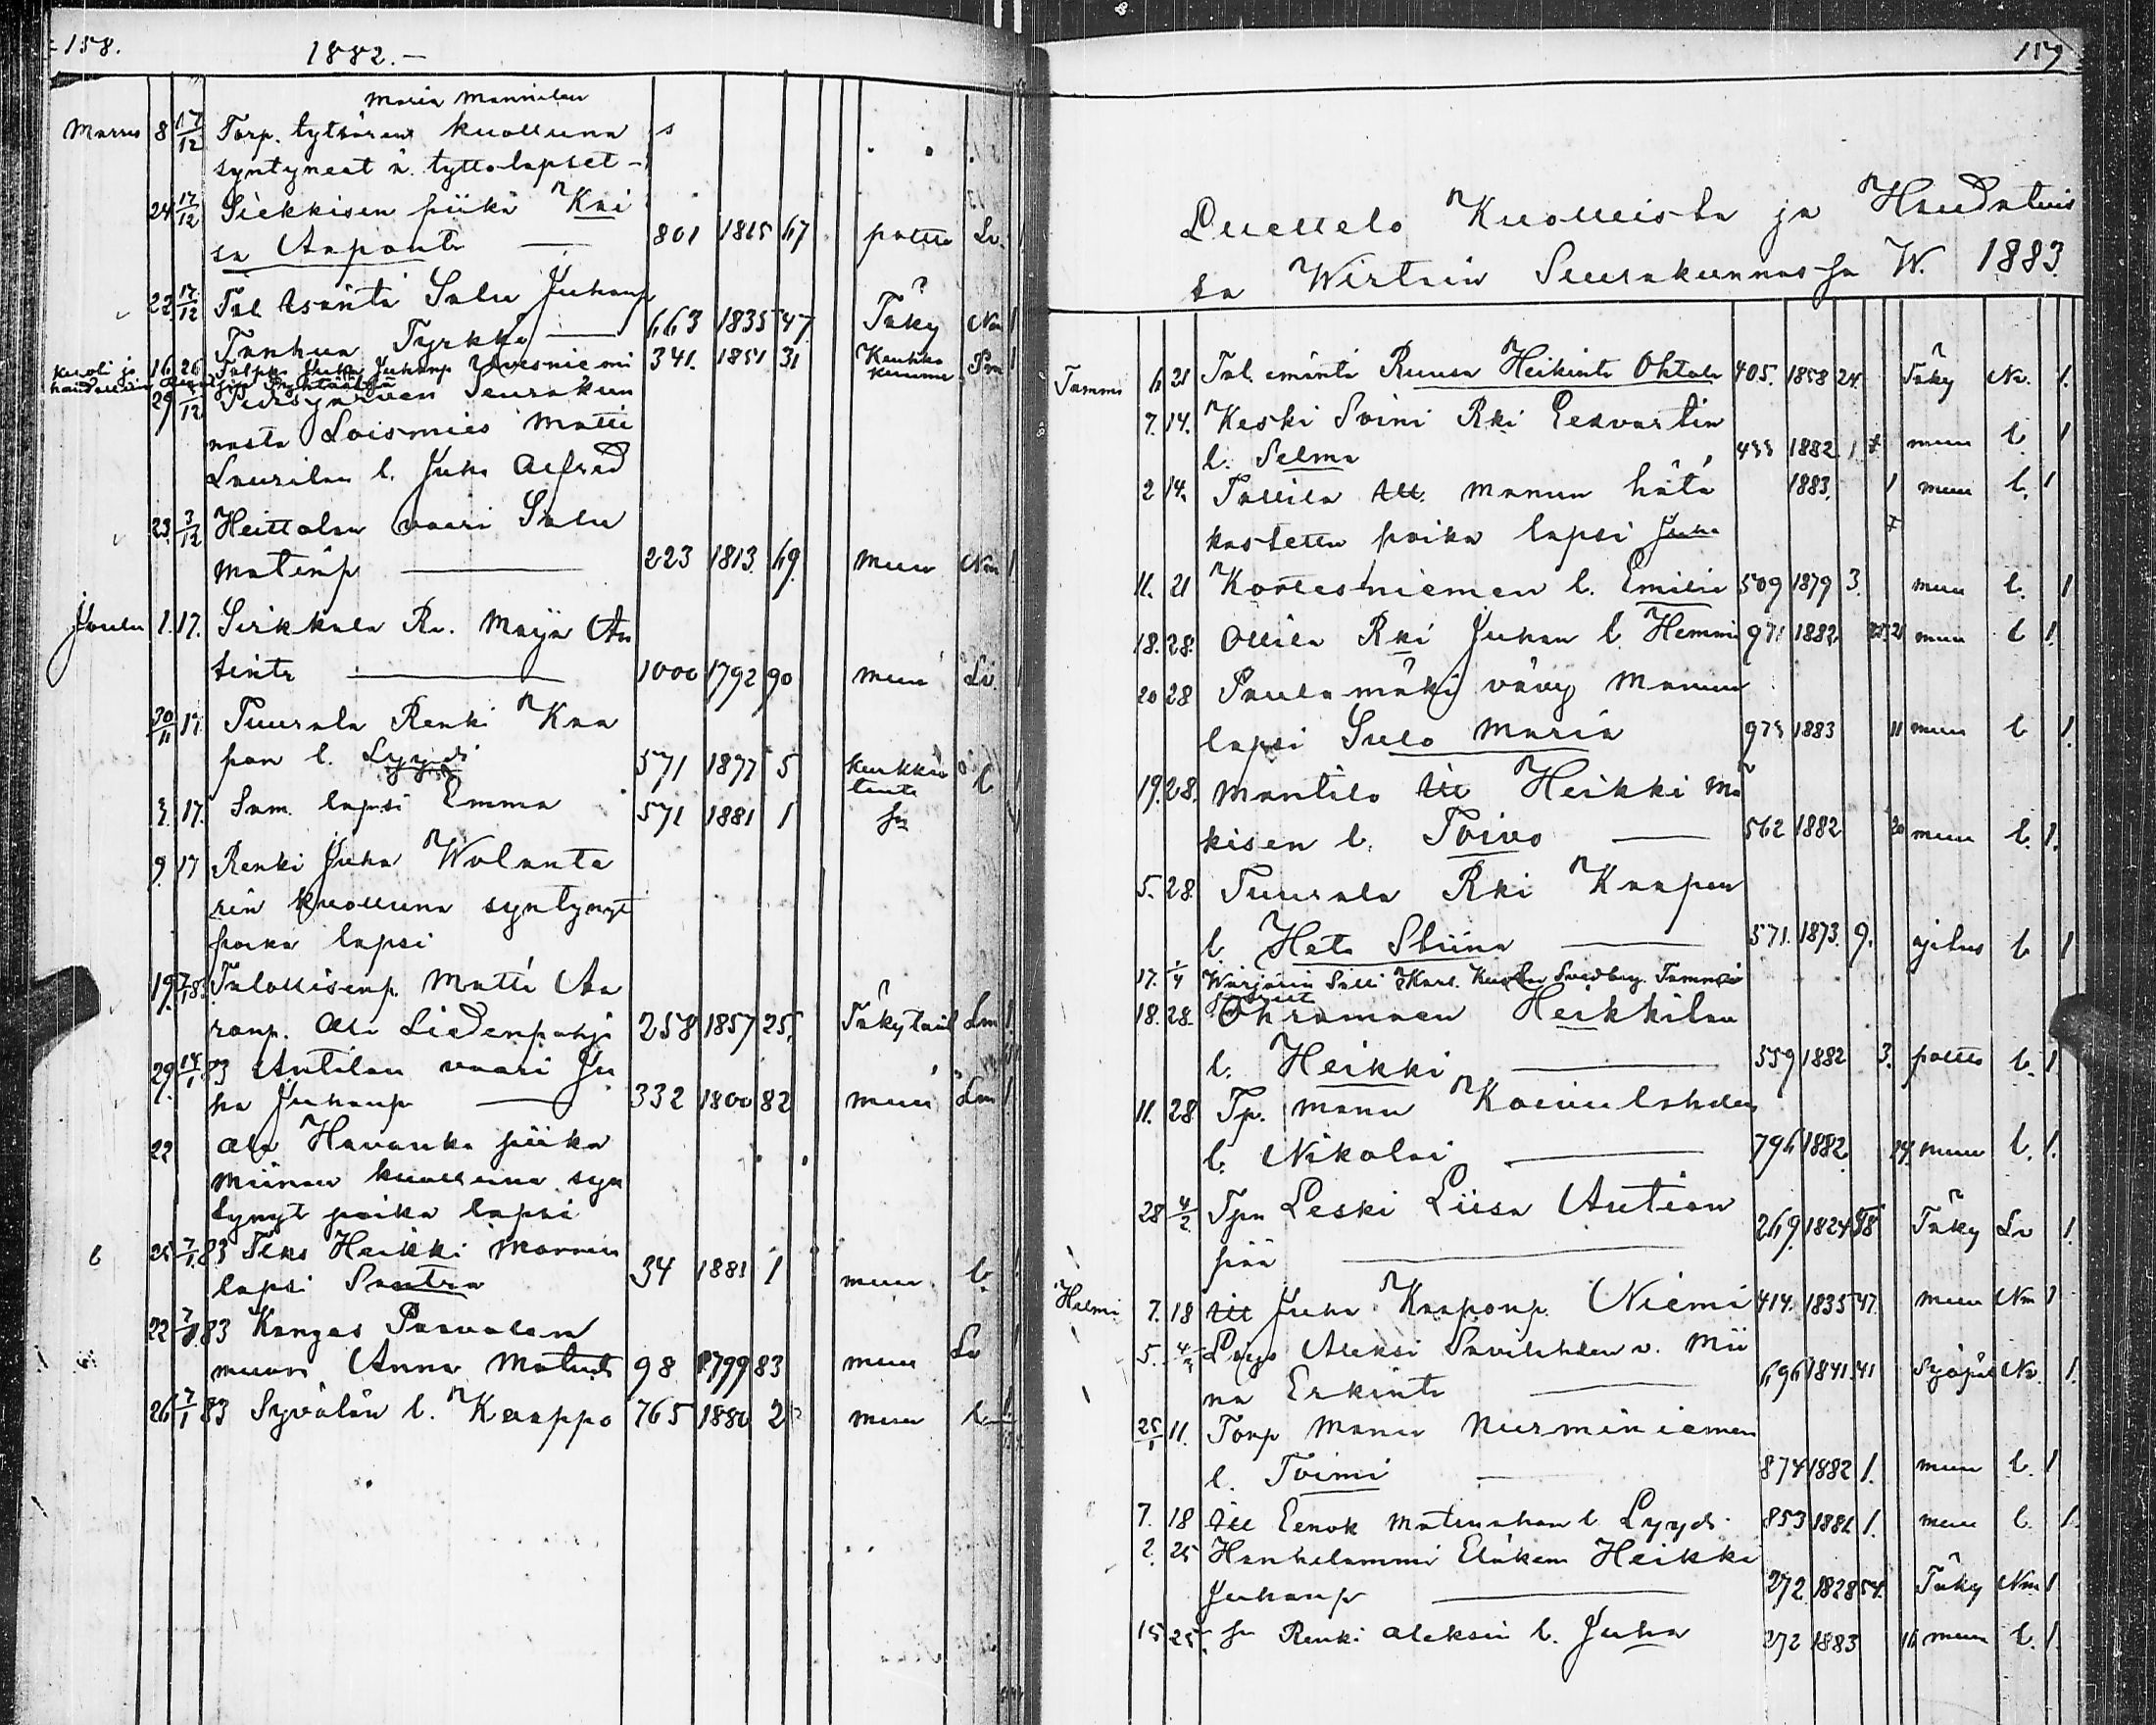 158.
1882.
Maria Mannilan
Marras 8 17/12 Torp. tyttären kuolluna
syntyneet 2. tyttölapset
24 17/12 Siekkisen piika Kai
sa Aapontr 801 1815 67 poltto Lv.
22 17/12 Tal. isäntä Salu Juhanp
Tanhua Tyrkkö 663 1835 47 Täky Nm 1
Kuoli ja 16 26 Juha Juhanp 341. 1851 31 Keuhko kuume 1
haudattiin
29 Seurakun
nasta Loismies Matti
Laurilan l. Juha Alfred
23. 3/12 Heittolan vaari Salu
Matinp 223 1813. 69. muu Nm 1
Joulu 1. 17. Sirkkala Ra. Maija An
tintr 1000 1792 90 muu Lv. 1
30/11 17. Tuurala Renki Kaa
pon l. Lyydi 571 1877 5 l. 1
3. 17. Sam. lapsi Emma 571 1881 1 sa
9. 17 Renki Juha Wolante
rin kuolluna syntynyt
poika lapsi
19. Talollisenp. Matti Aa
ronp. Ala Liedenpohja 258 1857 25. Täkytauti Lm 1.
29. 14/1 83 Antilan vaari Ju
ha Juhanp 332 1800 82 muu Lm 1.
22 Ala Havanka piika
Miinan kuolluna syn
tynyt poika lapsi
25 7/1 83 Heikki Mannin
lapsi Santra 34 1881 1 muu l.
22 7/1 83 Kangas Paavolan
muori Anna Matintr 98 1799 83 muu Lv 1
26 7/1 83 Syvälän l. Kaappo 765 1880 2 muu l. 1.
159
Luettelo Kuolleista ja Haudatuis
ta Wirtain Seurakunnassa W. 1883.
Tammi 6 21 Tal. emäntä Ruusa Heikintr Ohtola 405. 1858 24. Täky Nv. 1.
7. 14. Keski Soini Rki Eedvartin
l. Selma 455 1882. 1 muu l. 1
2 14. Tallila Manun hätä 1883. 1 muu l. 1
kastettu poika lapsi Juha
11. 21 Kortesniemen l. Emilia 509 1879 3. muu l. 1
18. 28. Ollila Rki Juhan l. Hemmi 971 1882 21 muu l 1.
20 28 Paulamäki vävy Manun
lapsi Sulo Maria 975 1883 11 muu l 1.
19. 28. Mantila Heikki Mä
kisen l. Toivo 562 1882 20 muu l. 1.
5. 28. Tuurala Rki Kaapon
l. Heta Stiina 571. 1873. 9. ajetus l. 1
17. 1/4
18. 28. Ohramaen Heikkilan
l. Heikki 359 1882 3. poltto l. 1
11. 28 Tp. Manu Koivulahden
l. Nikolai 796 1882. 14. muu l. 1.
28 4/2 Tpn Leski Liisa Aution
pää 269. 1824 58 Täky Lv 1.
Helmi 7. 18 Juha Kaaponp. Niemi 414. 1835 47. muu Nm 1
5. Aleksi Savilahden v. Mii
na Erkintr 696 1841 41 Syöpä Nv. 1.
25/1 11. Torp Manu Nurminiemen
l. Toimi 874 1882 1. muu l. 1
7. 18 Eenok Matinahon l. Lyydi 853 1881 1. muu l. 1.
2. 25 Hanhelammi Eläkem Heikki
Juhanp 272. 1828 54. Täky Nm 1
15 25. sa Renki Aleksin l. Juha 272 1883 16 muu l. 1.